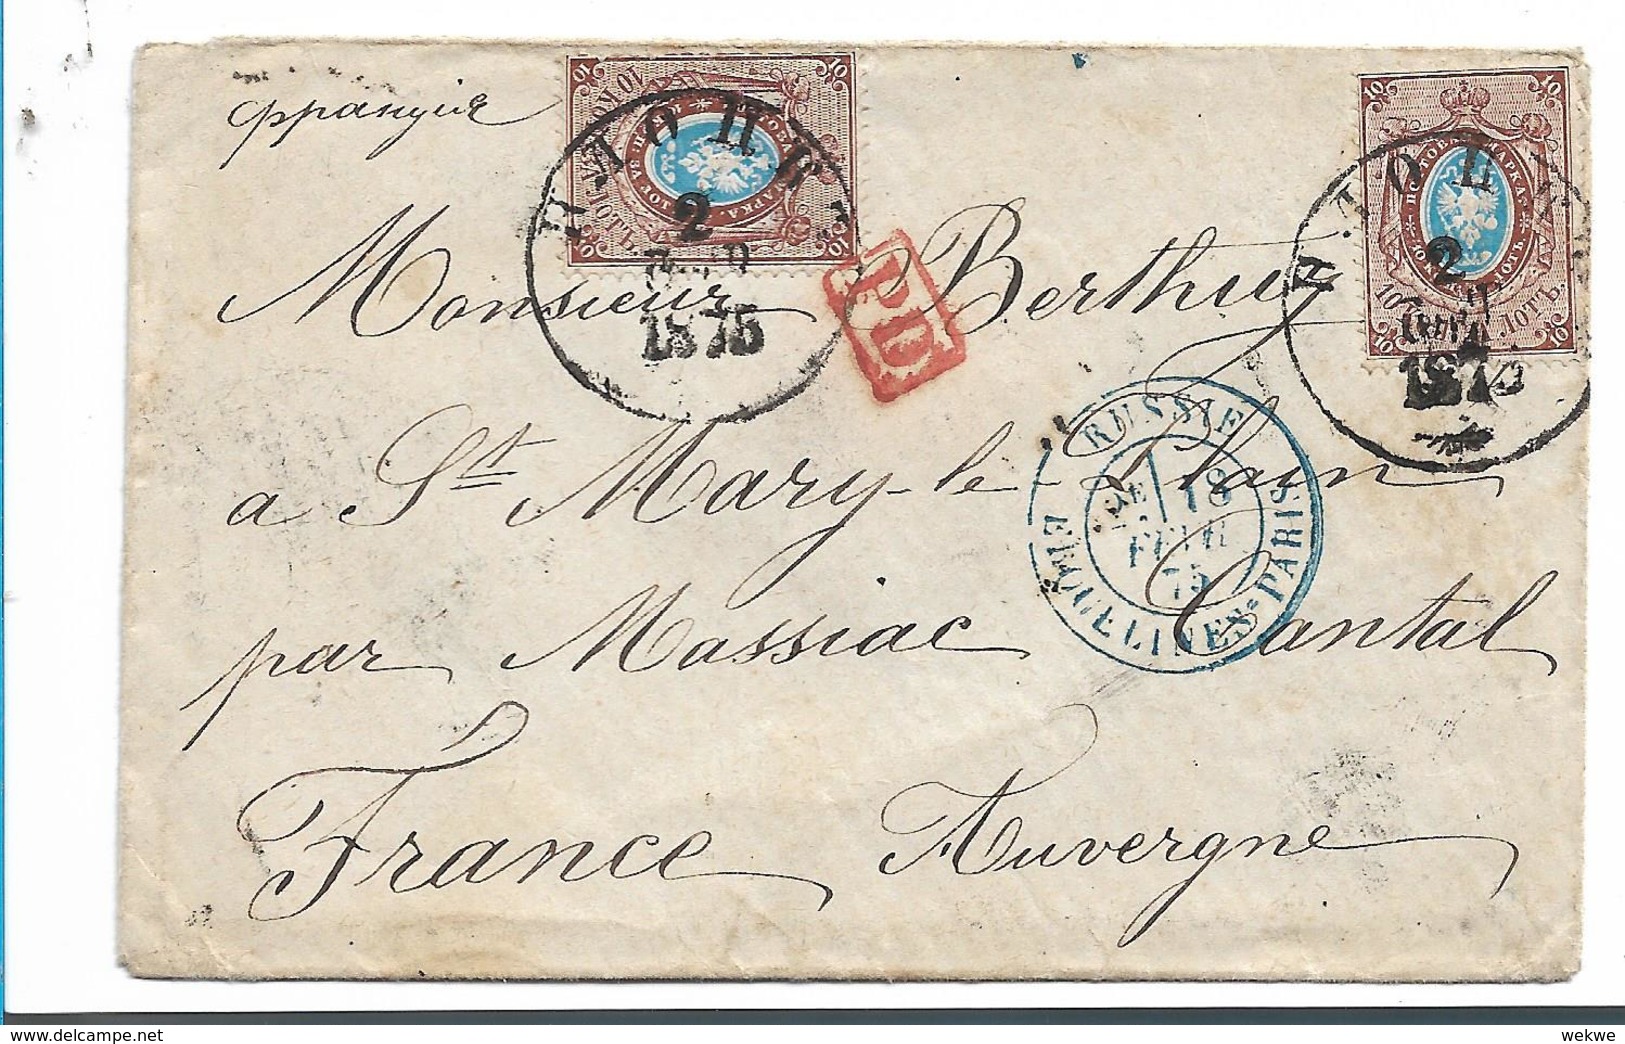 франция
Monsieur Berthuy
a St Mary-le-Plain
par Massiac Cantal
France Auvergne
PD
2
1875
2
RUSSIE
18
FEVR
75
ERQUELINES-PARIS
10
10
10
10
10
10
10
10
wekwe